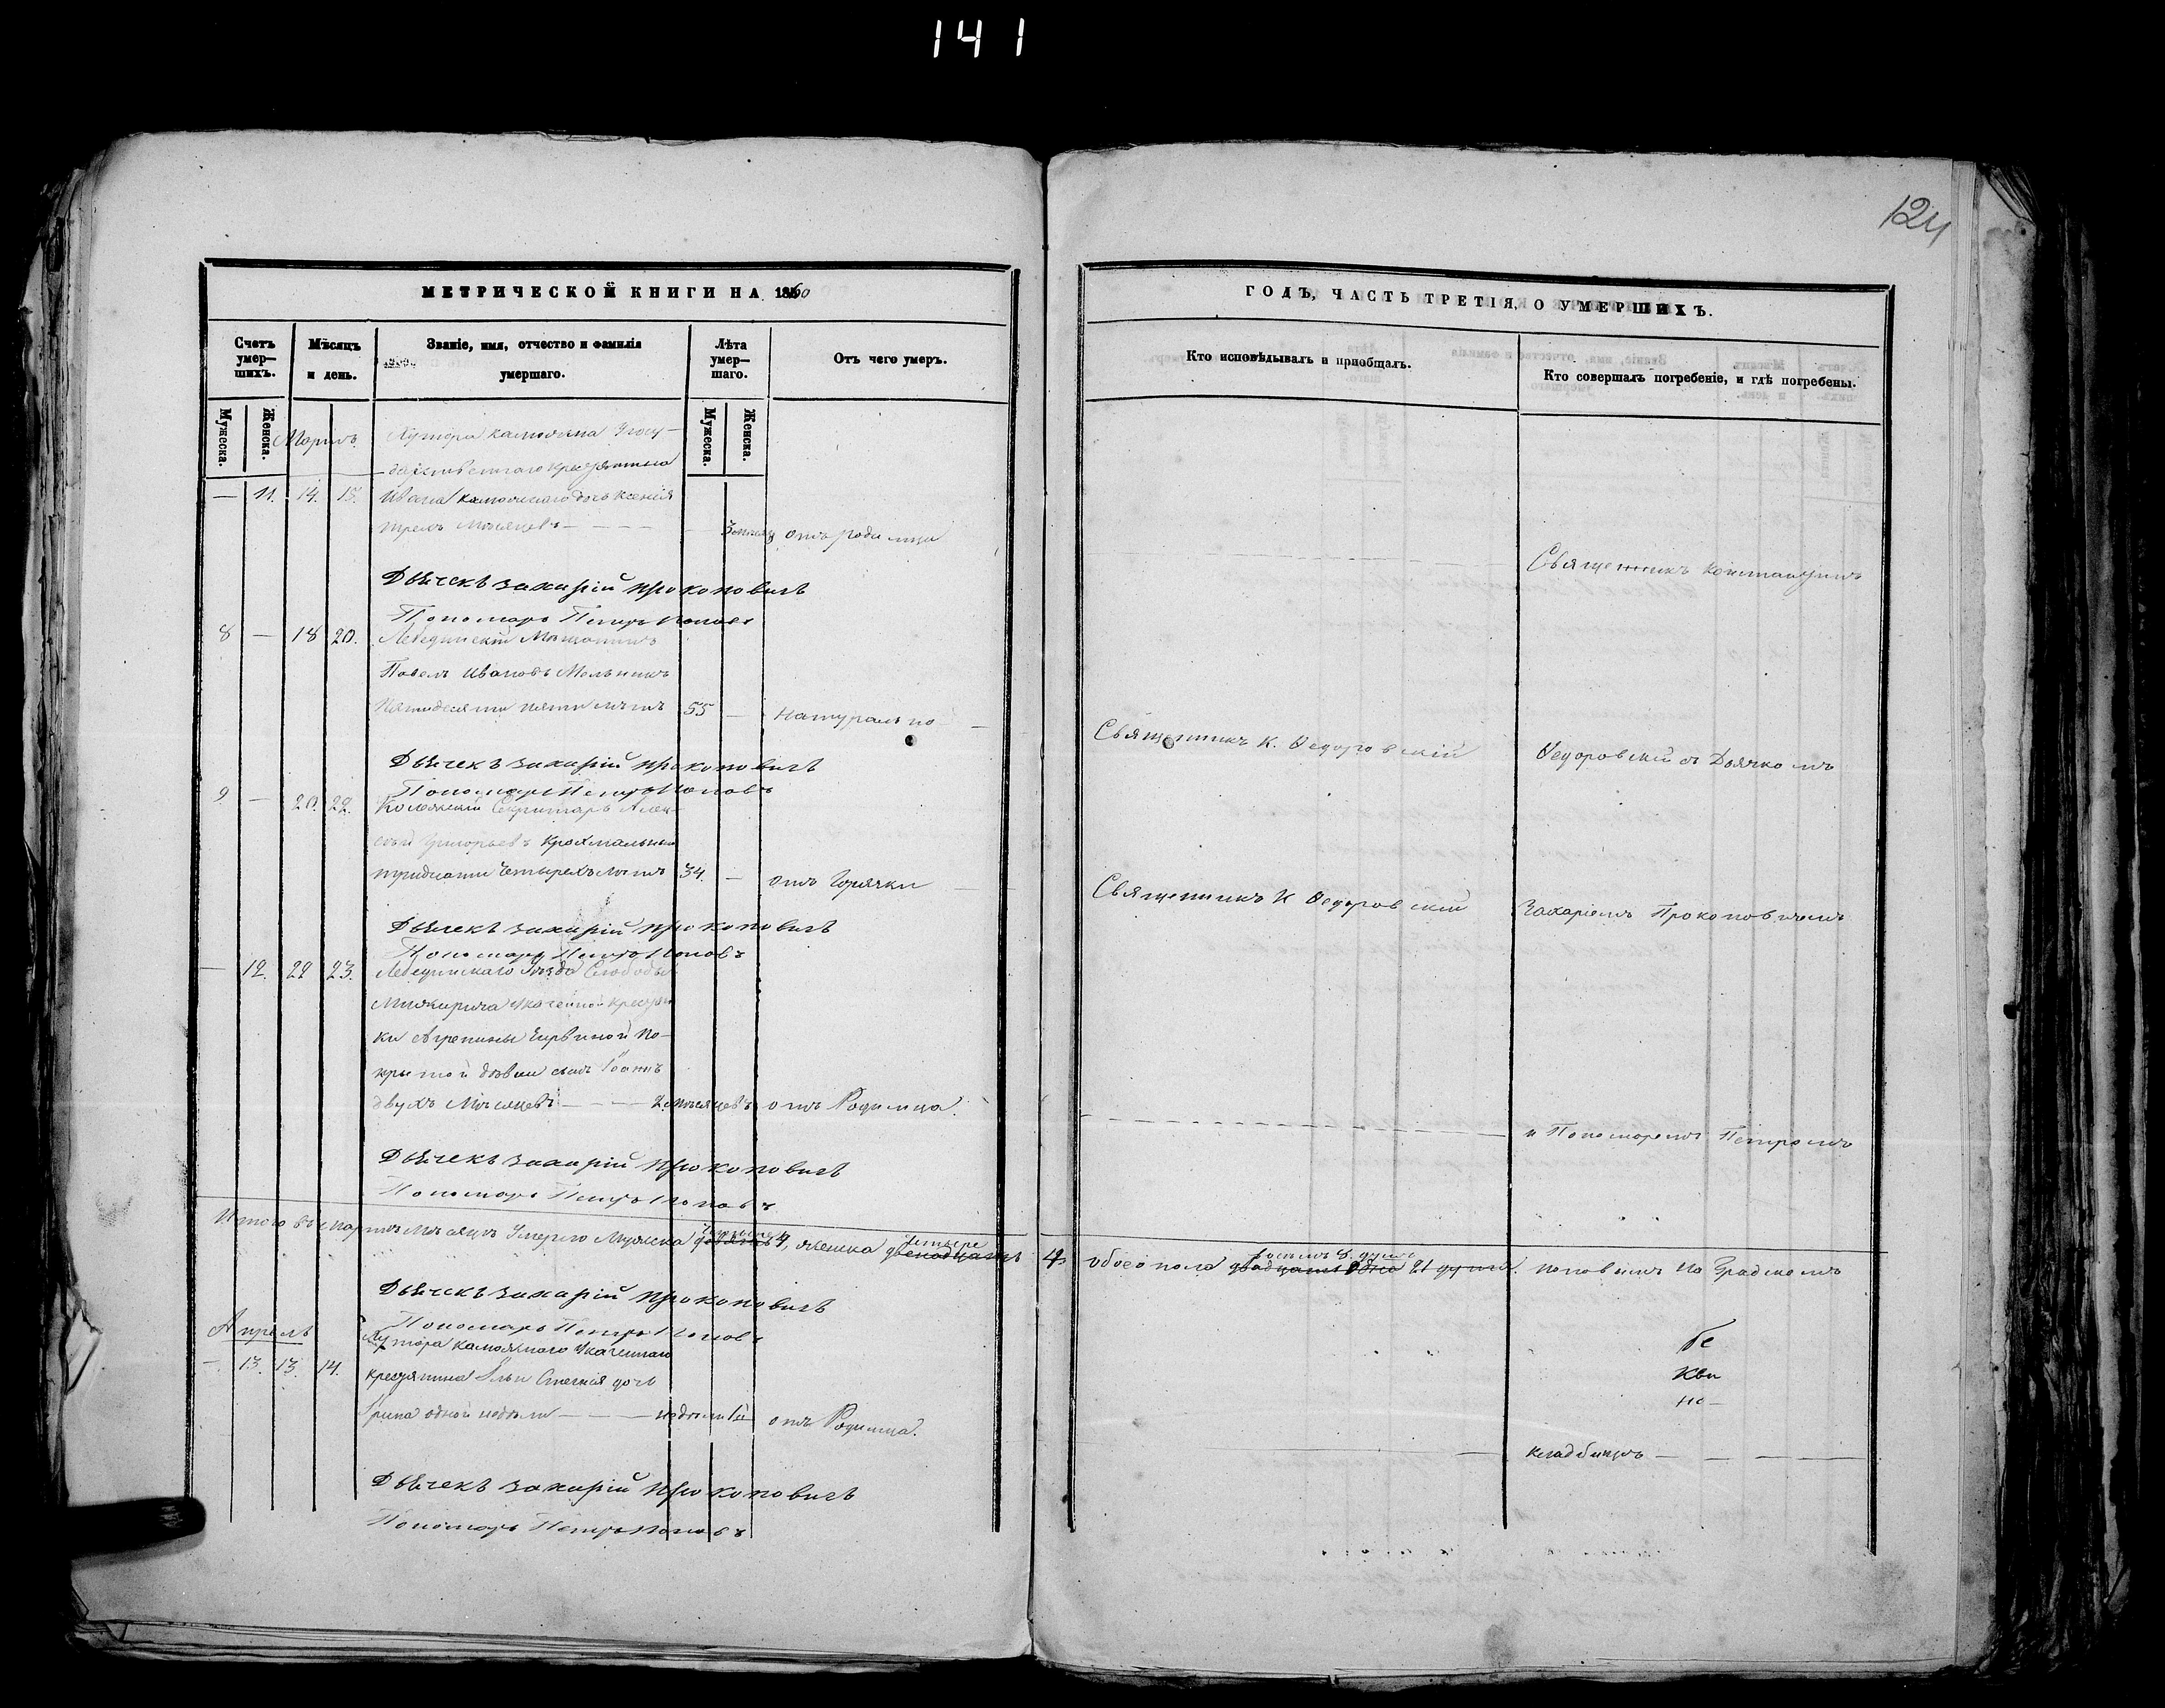 141
124
МЕТРИЧЕСКОЙ КНИГИ НА 1860
Счетъ умер-шихъ.
Мѣсяцъ и день.
Званіе, имя, отчество и фамилія умершаго.
Лѣта умер-шаго.
Отъ чего умеръ.
Мужеска.
Женска.
Мужеска.
Женска.
Мартъ
Хутора Камяхина Госу-
дарственнаго крестьянина
— 11. 14. 15. Ивана дочь Ксенія
трехъ мѣсяцевъ — 3 мѣсяц отъ родимца
Дьячекъ Захарій Прокоповичъ
Пономарь Петръ Поповъ
8 — 18 20. Лебединскій Мѣщанинъ
Павелъ Ивановъ Мельникъ
пятидесяти пяти лѣтъ 55 — натурально —
Дьячекъ Захарій Прокоповичъ
Пономарь Петръ Поповъ
9 — 20. 22. Колежскій Секритарь Алек-
сѣй Григорьевъ Крохмальный
тридцати четырехъ лѣтъ 34. — отъ горячки —
Дьячекъ Захарій Прокоповичъ
Пономарь Петръ Поповъ
— 12. 22 23. Лебединскаго Уѣзда Слободы
Межирича Казенной крестьян
ки Агрепины По-
крытой дѣвки сынъ Іоаннъ
двухъ мѣсяцевъ — 2 мѣсяцевъ отъ Родимца.
Дьячекъ Захарій Прокоповичъ
Пономарь Петръ Поповъ
Итого въ Мартѣ мѣсяцѣ умерло мужеска девять четыре 4, женска двенадцать четыре
Дьячекъ Захарій Прокоповичъ
Пономарь Петръ Поповъ
Апрель
Хутора Казеннаго
— 13. 13. 14. крестьянина Ильи дочь
Ирина одной недѣли — недѣли 1й отъ Родимца.
Дьячекъ Захарій Прокоповичъ
Пономарь Петръ Поповъ
ГОДЪ, ЧАСТЬ ТРЕТІЯ, О УМЕРШИХЪ.
Кто исповѣдывалъ и приобщалъ.
Кто совершалъ погребеніе, и гдѣ погребены.
Священникъ Константинъ
Священникъ К. Ѳедоровскій
Ѳедоровскій съ Дьячкомъ
Священникъ К Ѳедоровскій
Захаріемъ Прокоповичемъ
и Пономаремъ Петромъ
обоего пола двадцать одна 21 душа восемь 8. душъ
Поповымъ На Градскомъ
бе
кви
но —
кладбищѣ — — —